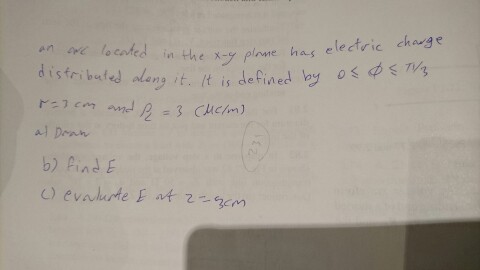 an arc located in the x-y plane has electric charge
distributed along it. It is defined by 0 ≤ ϕ ≤ π/3
r=3 cm and ρ_L = 3 (μC/m)
a) Draw
b) Find E
c) evaluate E at z=3cm
231